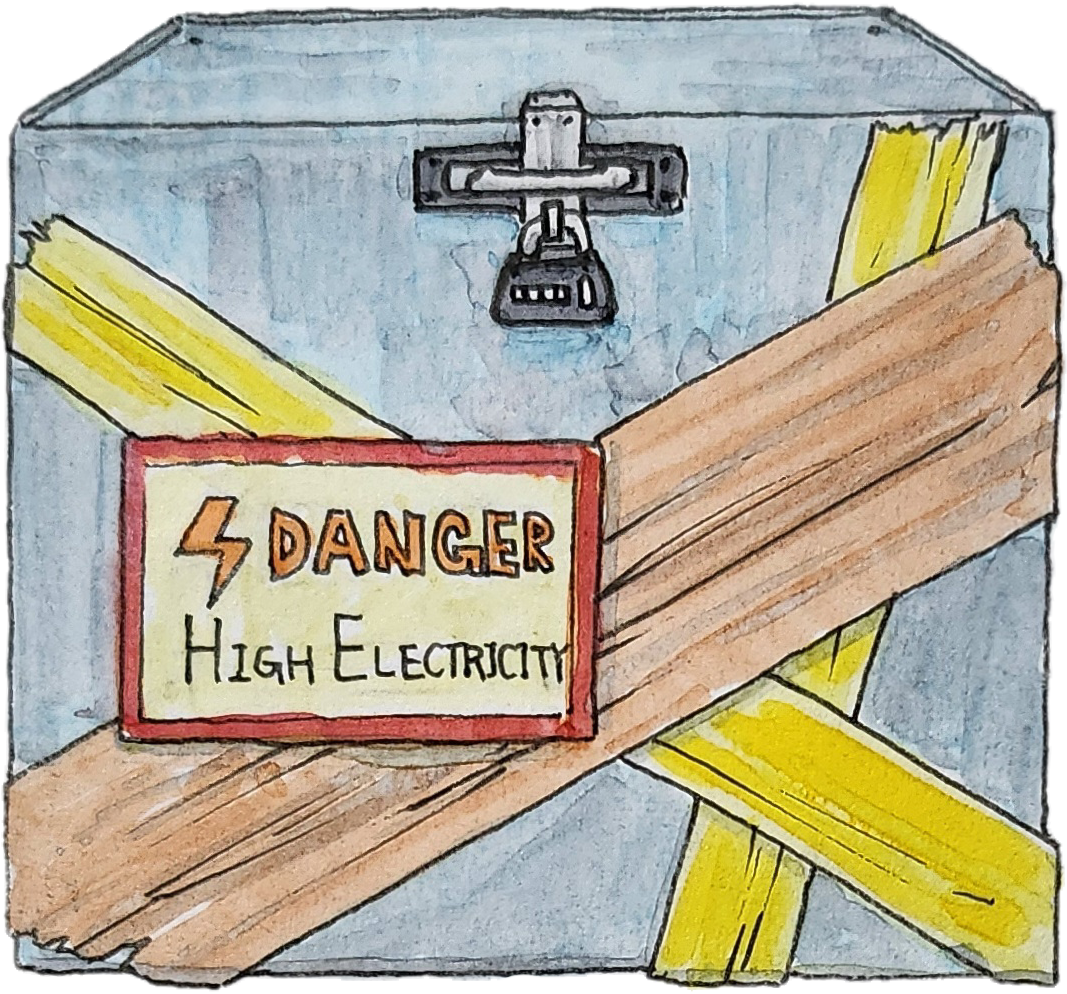 DANGER
HIGH ELECTRICITY